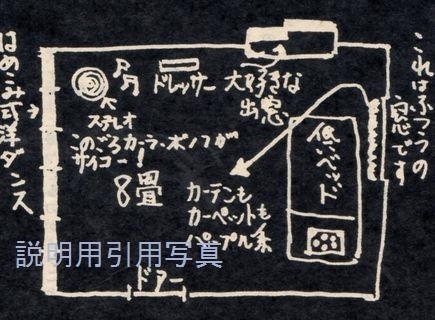 これはふつうの
窓です
大好きな
出窓
ドレッサー
ステレオ
このごろカーラ・ボノフが
サイコー!
8畳
低いベッド
カーテンも
カーペットも
パープル系
はめこみ式洋ダンス
ドアー
説明用引用写真